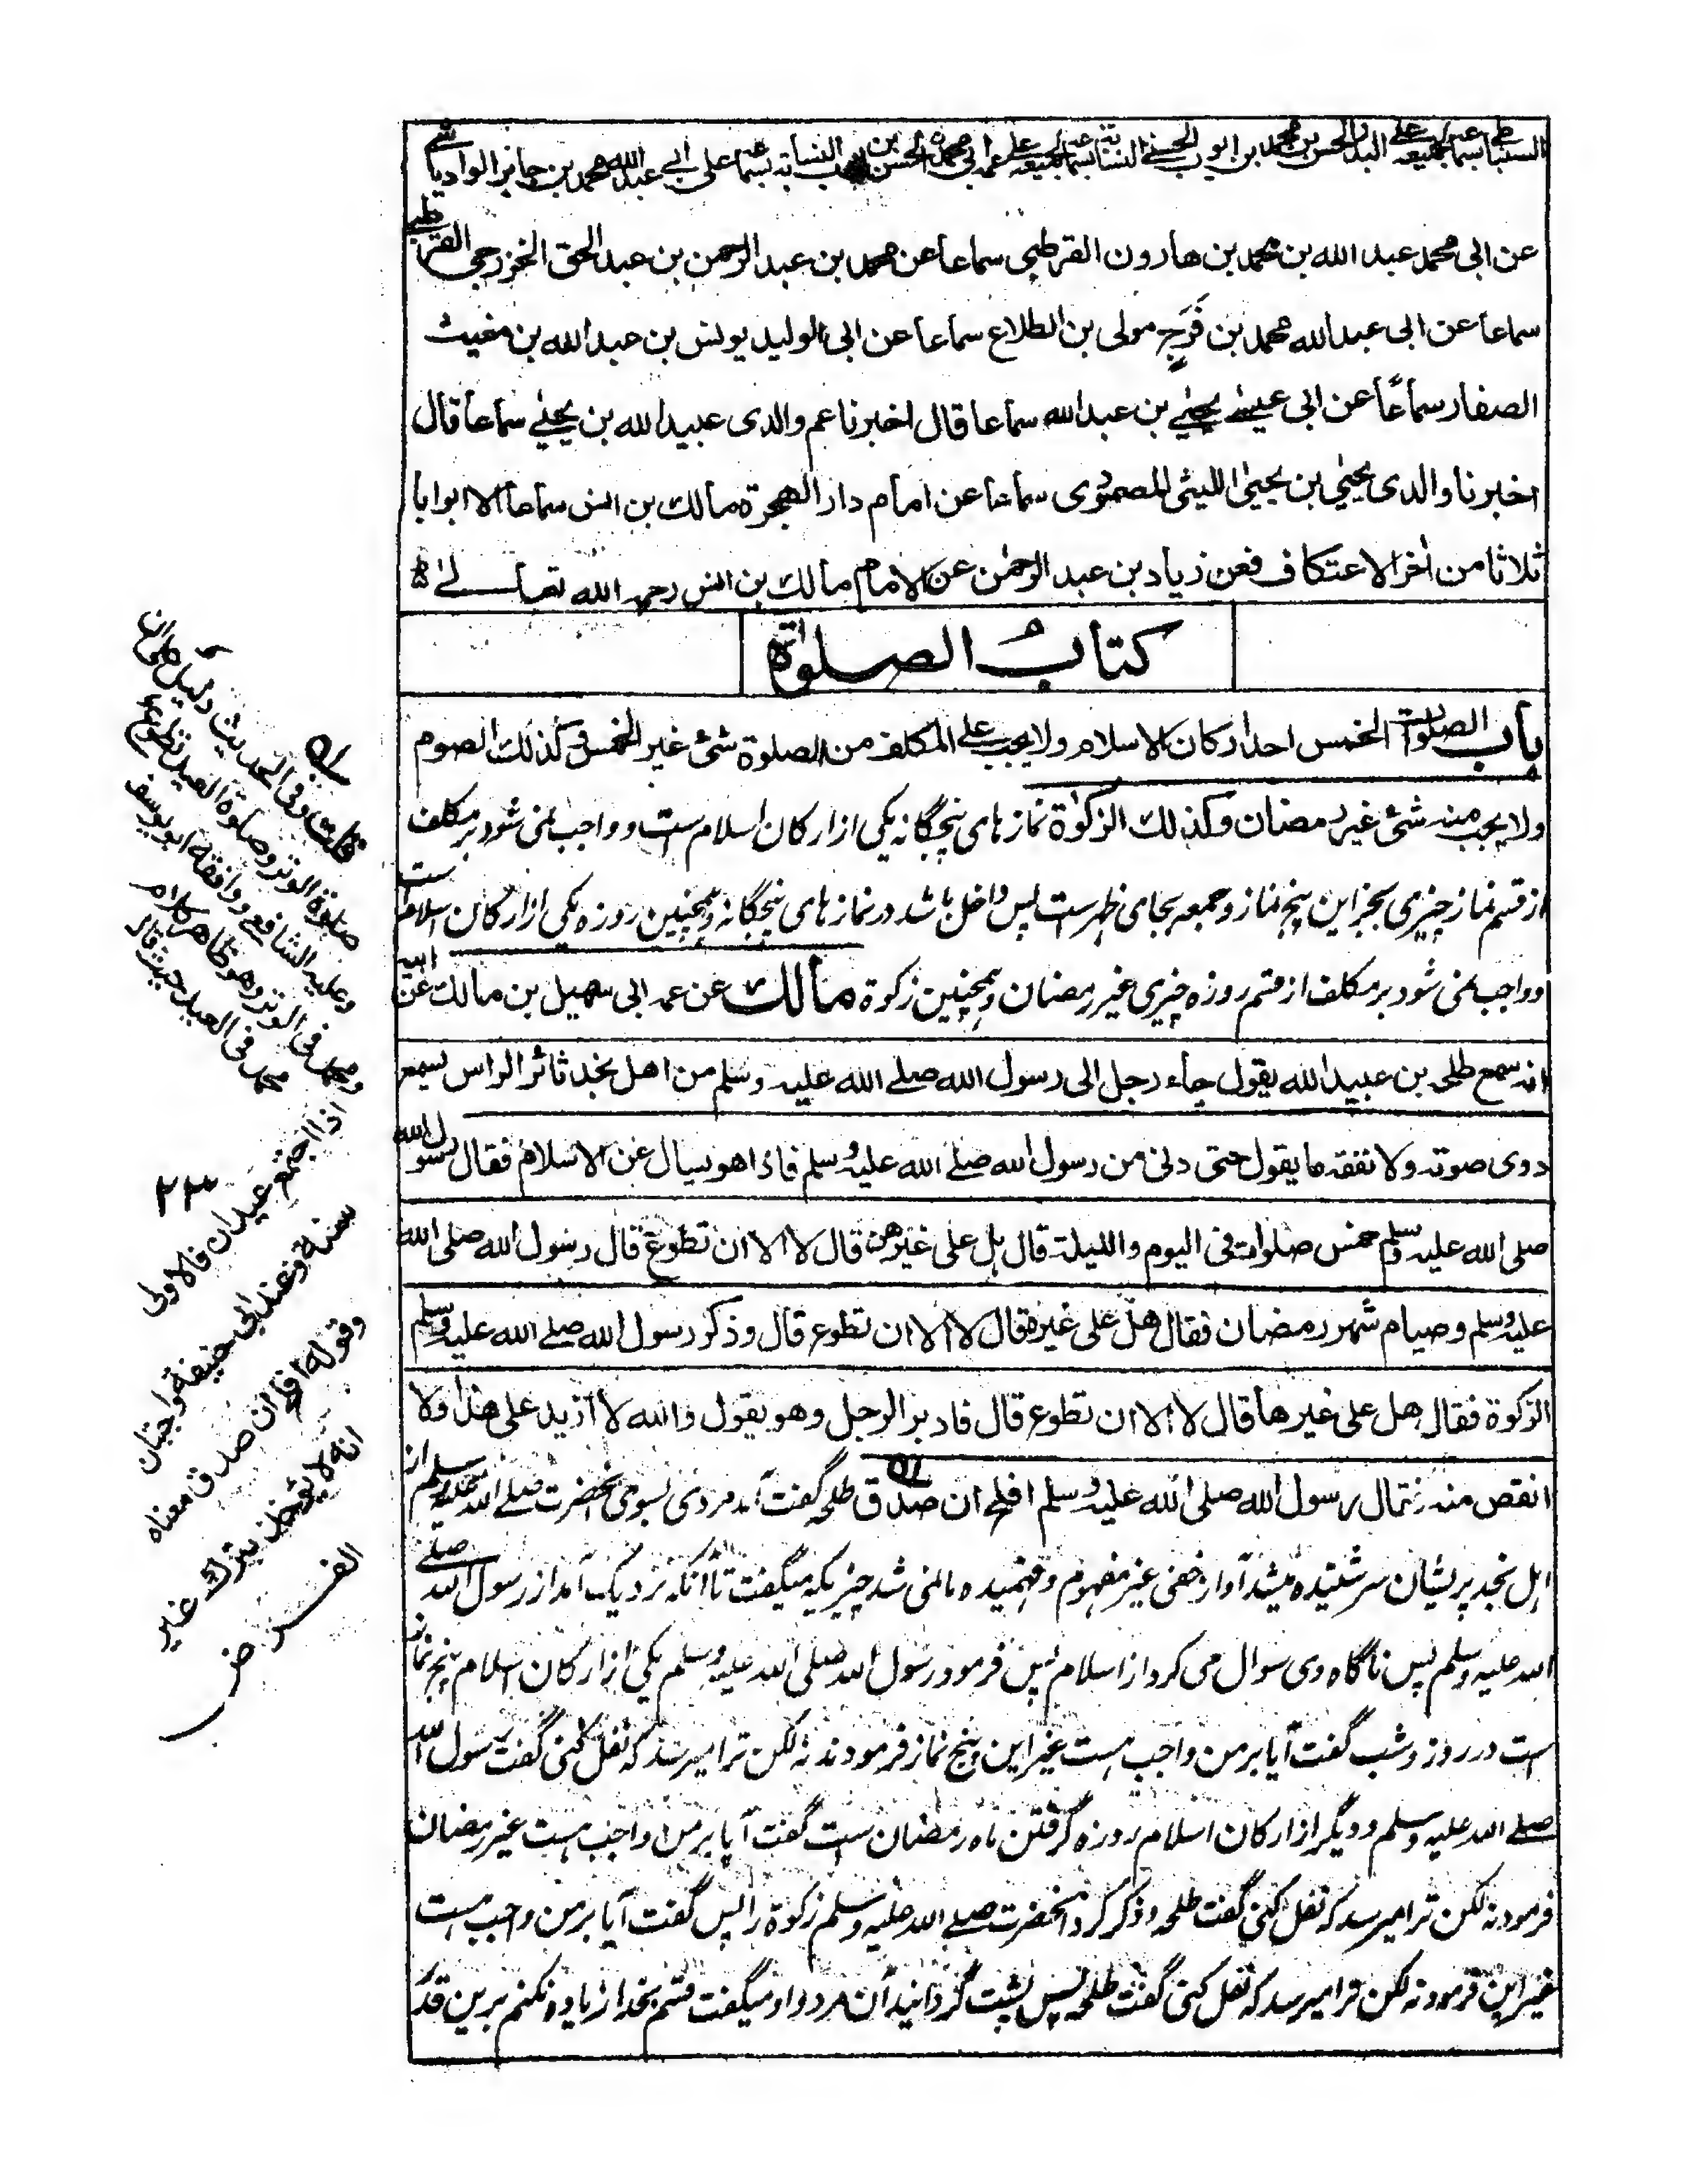 السنباطی بسماعه لجمیعه علی البدر الحسن بن محمد بن ایوب الحسنی النسابة بسماعه لجمیعه علی عمه ابی محمد الحسن بن ایوب النسابة بسماعه علی ابی عبدالله محمد بن جابر الوادیاشی
عن ابی محمد عبد الله بن محمد بن هارون القرطبی سماعا عن محمد بن عبد الرحمن بن عبد الحق الخزرجی القرطبی
سماعا عن ابی عبدالله محمد بن فَرَجٍ مولی بن الطلاع سماعا عن ابی الولید یونس بن عبدالله بن مغیث
الصفار سماعًا عن ابی عیسٰے یحیٰے بن عبدالله سماعا قال اخبرنا عم والدی عبیدالله بن یحیٰے سماعا قال
اخبرنا والدی یحیٰی بن یحیٰی اللیثی المصمودی سماعا عن امام دار الهجرة مالك بن انس سماعا الا ابوابا
ثلاثا من اٰخر الاعتکاف فعن زیاد بن عبد الرحمٰن عن الامام مالك بن انس رحمه الله تعالے
کتابُ الصلوٰة
باب الصلوٰة الخمس احد ارکان الاسلام ولا یجب علی المکلف من الصلوة شئ غیر الخمس وکذلك الصوم
ولا یجب منه شئ غیر رمضان وکذلك الزکوٰة نماز های پنجگانه یکی از ارکان اسلام ست و واجب نمی شود بر مکلف
از قسم نماز چیزی بجز این پنج نماز و جمعه بجای ظهر ست پس داخل باشد در نماز های پنجگانه و همچنین روزه یکی از ارکان اسلام ست
و واجب نمی شود بر مکلف از قسم روزه چیزی غیر رمضان و همچنین زکوة مالك عن عمه ابی سهیل بن مالك عن ابیه
انه سمع طلحة بن عبیدالله یقول جاء رجل الی رسول الله صلے الله علیه وسلم من اهل نجد ثائر الراس یسمع
دوی صوته ولا نفقه ما یقول حتی دنی من رسول الله صلے الله علیه وسلم فاذا هو یسال عن الاسلام فقال رسول الله
صلی الله علیه وسلم خمس صلوات فی الیوم واللیلة قال هل علی غیرهن قال لا الا ان تطوع قال رسول الله صلی الله
علیه وسلم وصیام شهر رمضان فقال هل علی غیره قال لا الا ان تطوع قال وذکر رسول الله صلے الله علیه وسلم
الزکوة فقال هل علی غیرها قال لا الا ان تطوع قال فادبر الرجل وهو یقول والله لا ازید علی هذا ولا
انقص منه فقال رسول الله صلی الله علیه وسلم افلح ان صدق طلحه گفت آمد مردی بسوی آنحضرت صلے الله علیه وسلم از
اهل نجد پریشان سر شنیده میشد آواز خفی غیر مفهوم و فهمیده ما نمی شد چیزیکه میگفت تا آنکه نزدیک آمد از رسول الله صلے
الله علیه وسلم پس ناگاه وی سوال می کرد از اسلام پس فرمود رسول الله صلی الله علیه وسلم یکی از ارکان اسلام پنج نماز
ست در روز و شب گفت آیا بر من واجب هست غیر این پنج نماز فرمودند نه لکن ترا میرسد که نفل کنی گفت رسول الله
صلے الله علیه وسلم و دیگر از ارکان اسلام روزه گرفتن ماه رمضان ست گفت آیا بر من واجب هست غیر رمضان
فرمود نه لکن ترا میرسد که نفل کنی گفت طلحه و ذکر کرد آنحضرت صلے الله علیه وسلم زکوة را پس گفت آیا بر من واجب هست
غیر این فرمود نه لکن ترا میرسد که نفل کنی گفت طلحه پس پشت گردانید آن مرد و او میگفت قسم بخدا زیاده نکنم برین قدر
قلت وفی الحدیث دلیل علی ان
صلوة الوتر وصلوة العید تطوع
وعلیه الشافعی ووافقه ابو یوسف
ومحمد فی الوتر وهو ظاهر کلام
محمد فی العید حیث قال
اذا اجتمع عیدان فالاولی
سنة وعند ابی حنیفة واجبتان
وقوله افلح ان صدق معناه
انه لا یؤخذ بترك غیر
الفرض